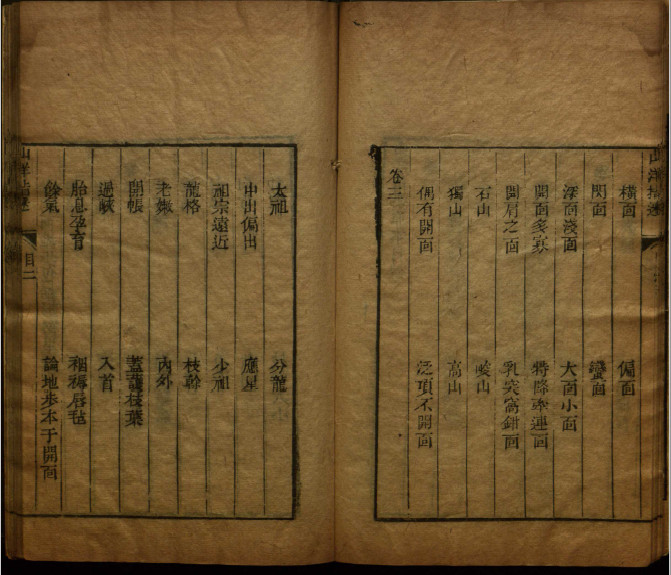 橫面 偏面
閃面 蠻面
深面淺面 大面小面
開面多寡 特降牽連面
開肩之面 乳突窩鉗面
石山 峻山
獨山 高山
偶有開面 泛頂不開面
卷三
太祖 分龍
中出偏出 應星
祖宗遠近 少祖
龍格 枝幹
老嫩 內外
開帳 蓋護枝葉
過峽 入首
胎息孕育 裀褥唇毡
餘氣 論地步本于開面
山洋指迷 目二